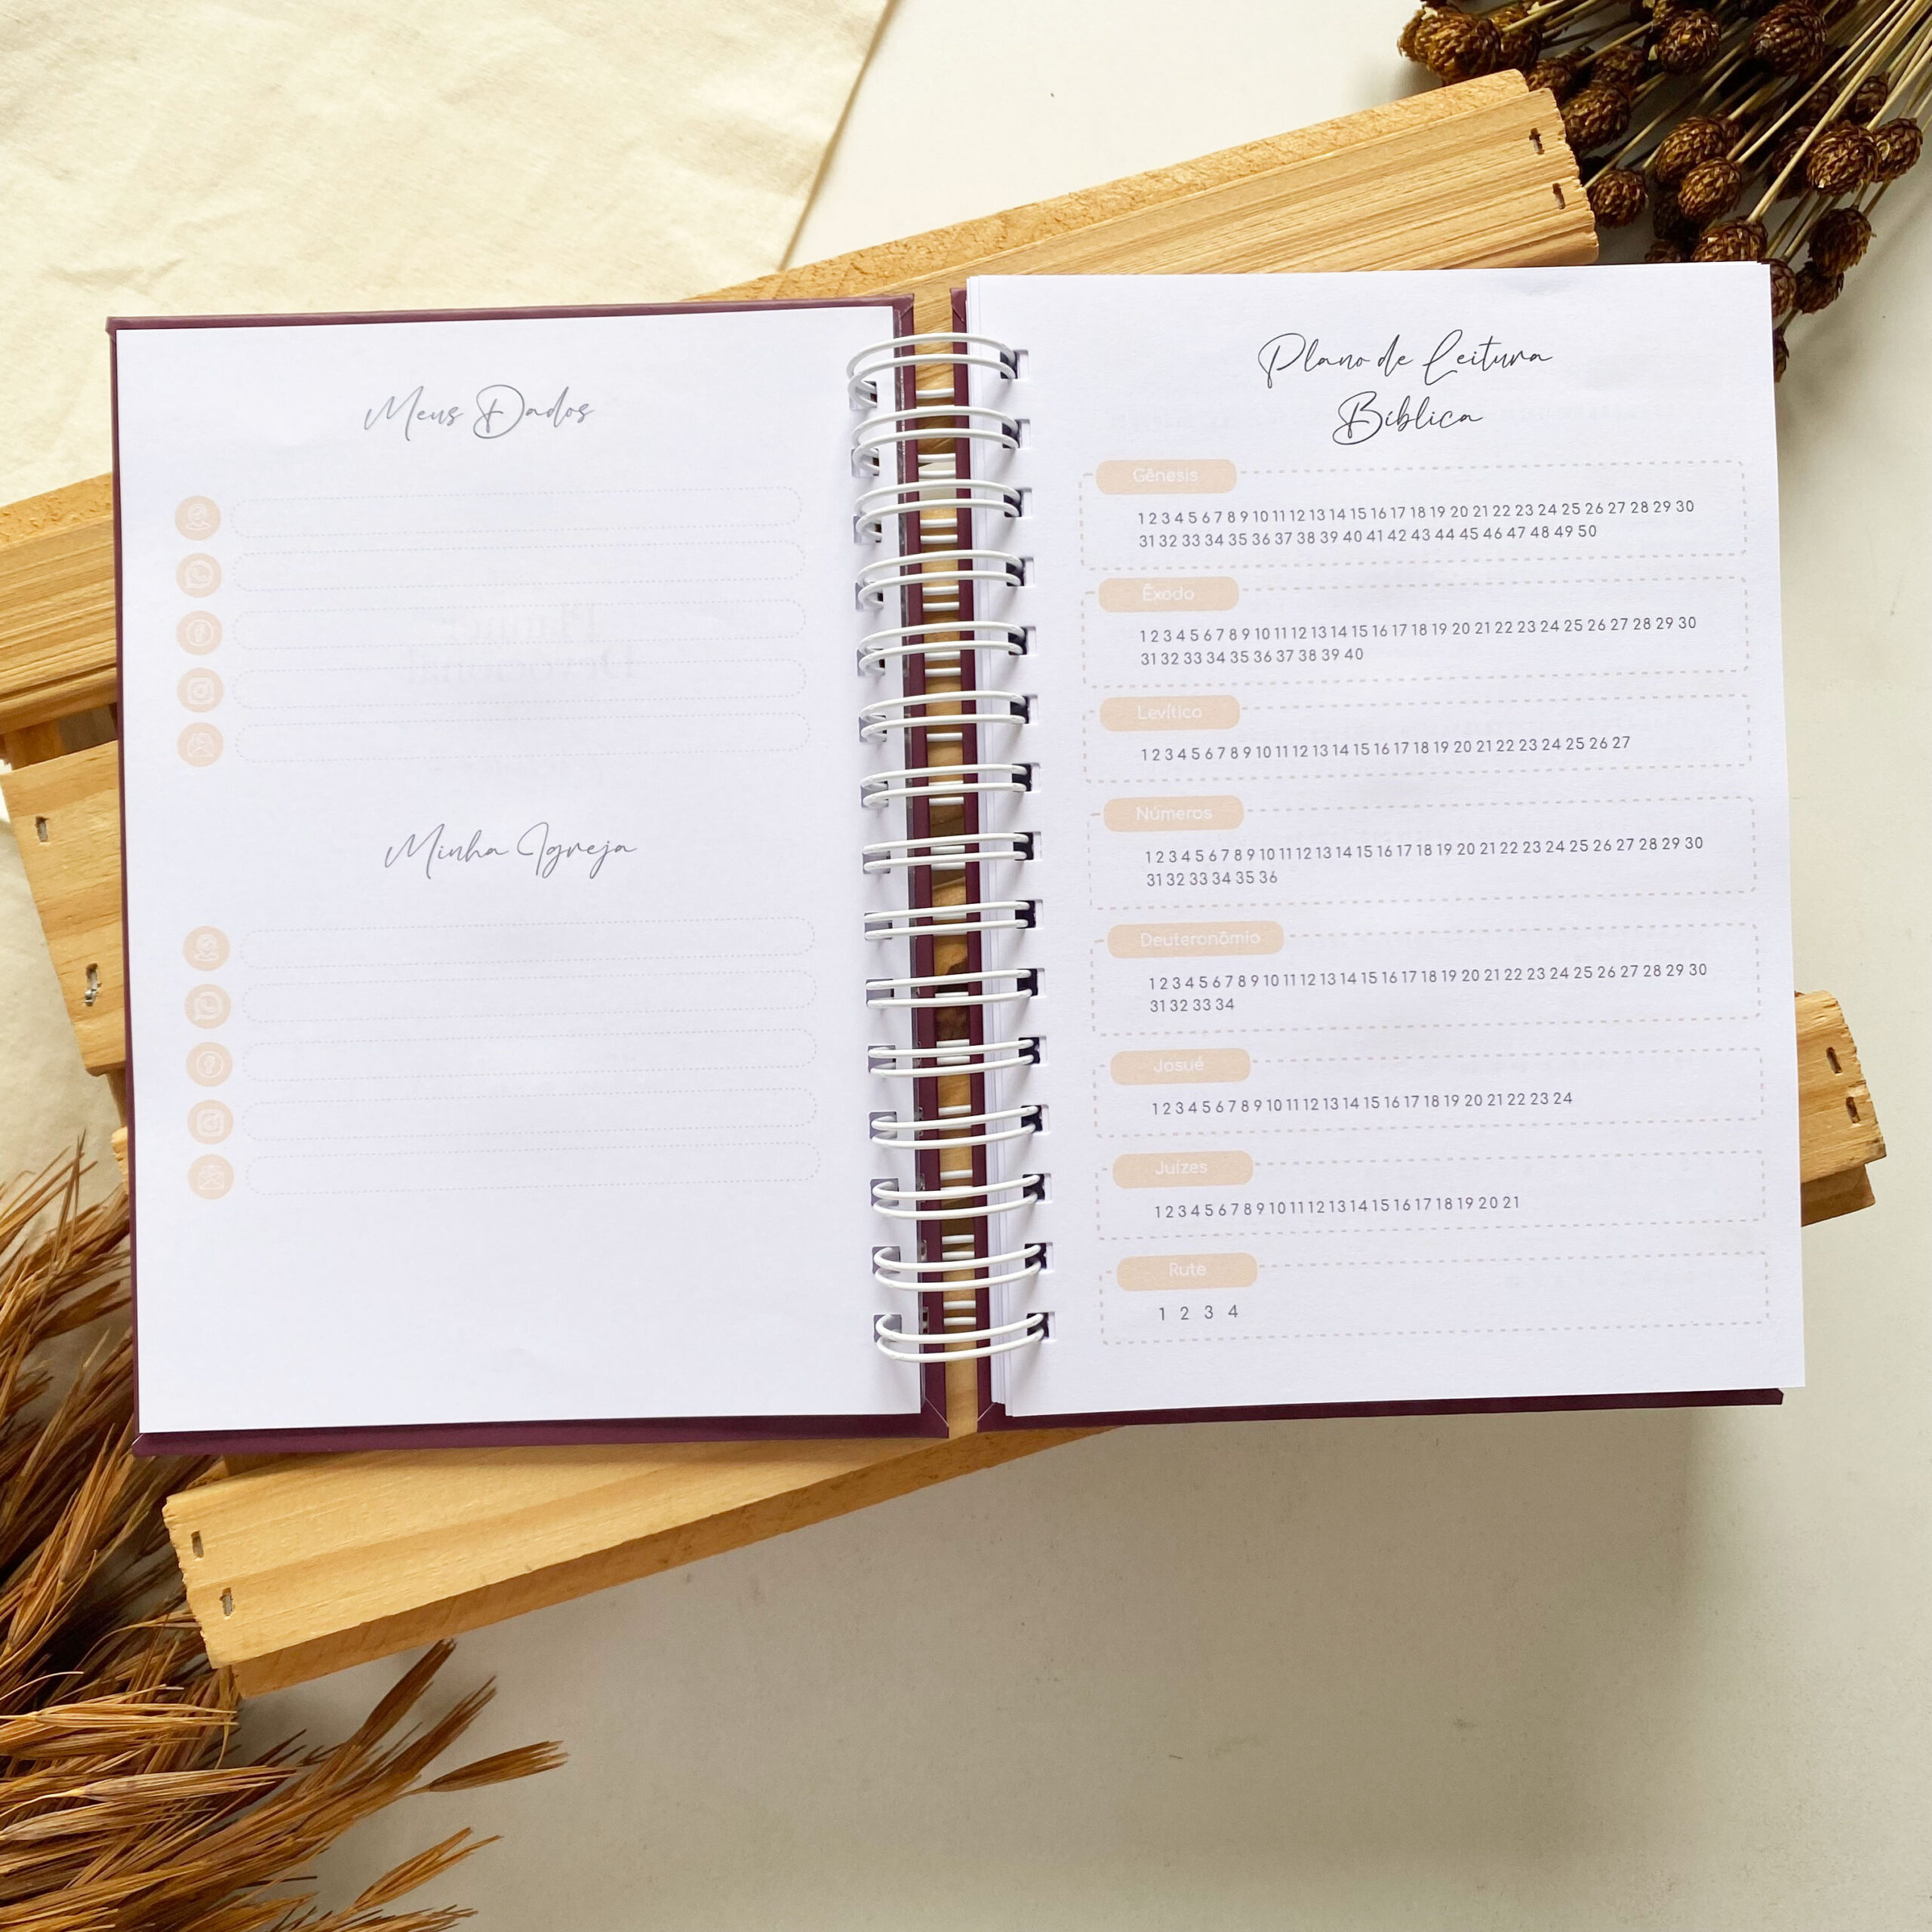 Meus Dados
Minha Igreja
Plano de Leitura
Bíblica
Gênesis
1 2 3 4 5 6 7 8 9 10 11 12 13 14 15 16 17 18 19 20 21 22 23 24 25 26 27 28 29 30
31 32 33 34 35 36 37 38 39 40 41 42 43 44 45 46 47 48 49 50
Êxodo
1 2 3 4 5 6 7 8 9 10 11 12 13 14 15 16 17 18 19 20 21 22 23 24 25 26 27 28 29 30
31 32 33 34 35 36 37 38 39 40
Levítico
1 2 3 4 5 6 7 8 9 10 11 12 13 14 15 16 17 18 19 20 21 22 23 24 25 26 27
Números
1 2 3 4 5 6 7 8 9 10 11 12 13 14 15 16 17 18 19 20 21 22 23 24 25 26 27 28 29 30
31 32 33 34 35 36
Deuteronômio
1 2 3 4 5 6 7 8 9 10 11 12 13 14 15 16 17 18 19 20 21 22 23 24 25 26 27 28 29 30
31 32 33 34
Josué
1 2 3 4 5 6 7 8 9 10 11 12 13 14 15 16 17 18 19 20 21 22 23 24
Juízes
1 2 3 4 5 6 7 8 9 10 11 12 13 14 15 16 17 18 19 20 21
Rute
1 2 3 4